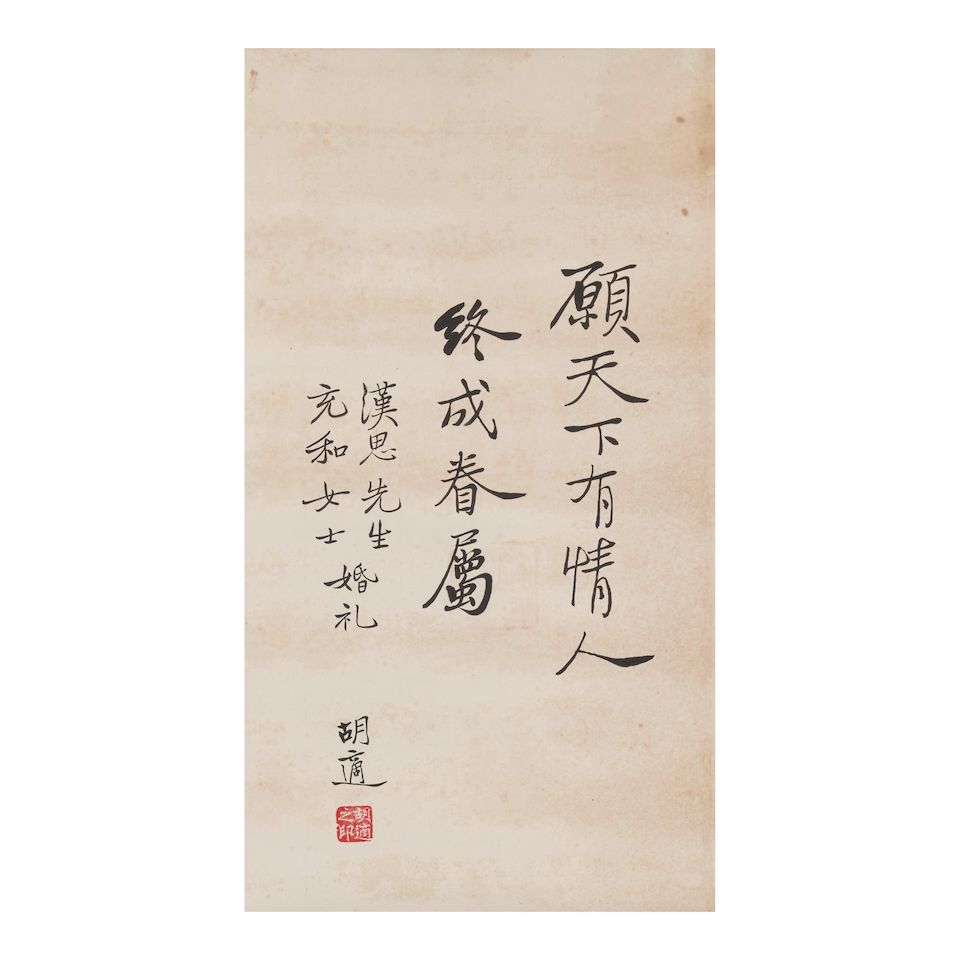 願天下有情人
終成眷屬
漢思先生
充和女士
婚礼
胡適
胡適之印